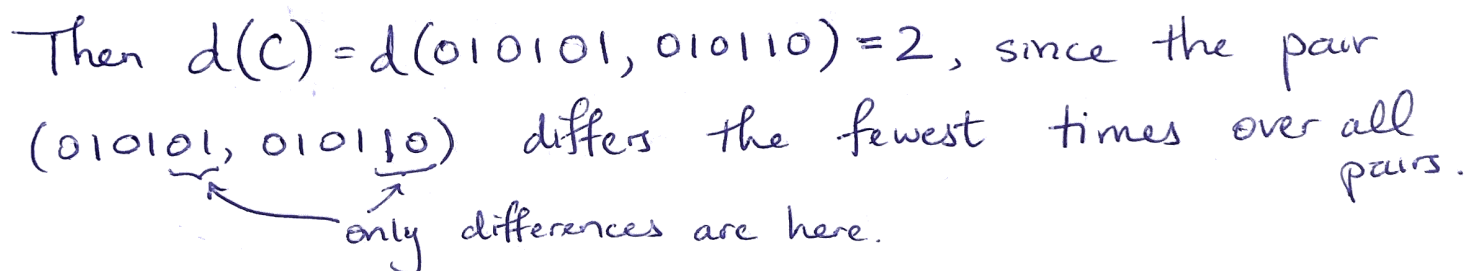 Then d(C) = d(010101, 010110) = 2, since the pair
(010101, 010110) differs the fewest times over all
pairs.
only differences are here.